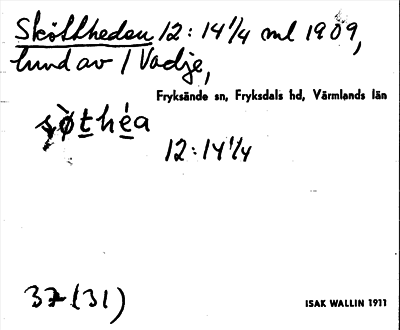 Sköttheden 12:14 1/4 ml 1909,
lund av / Vadje,
Fryksände sn, Fryksdals hd, Värmlands län
12:14 1/4
37 (31)
ISAK WALLIN 1911